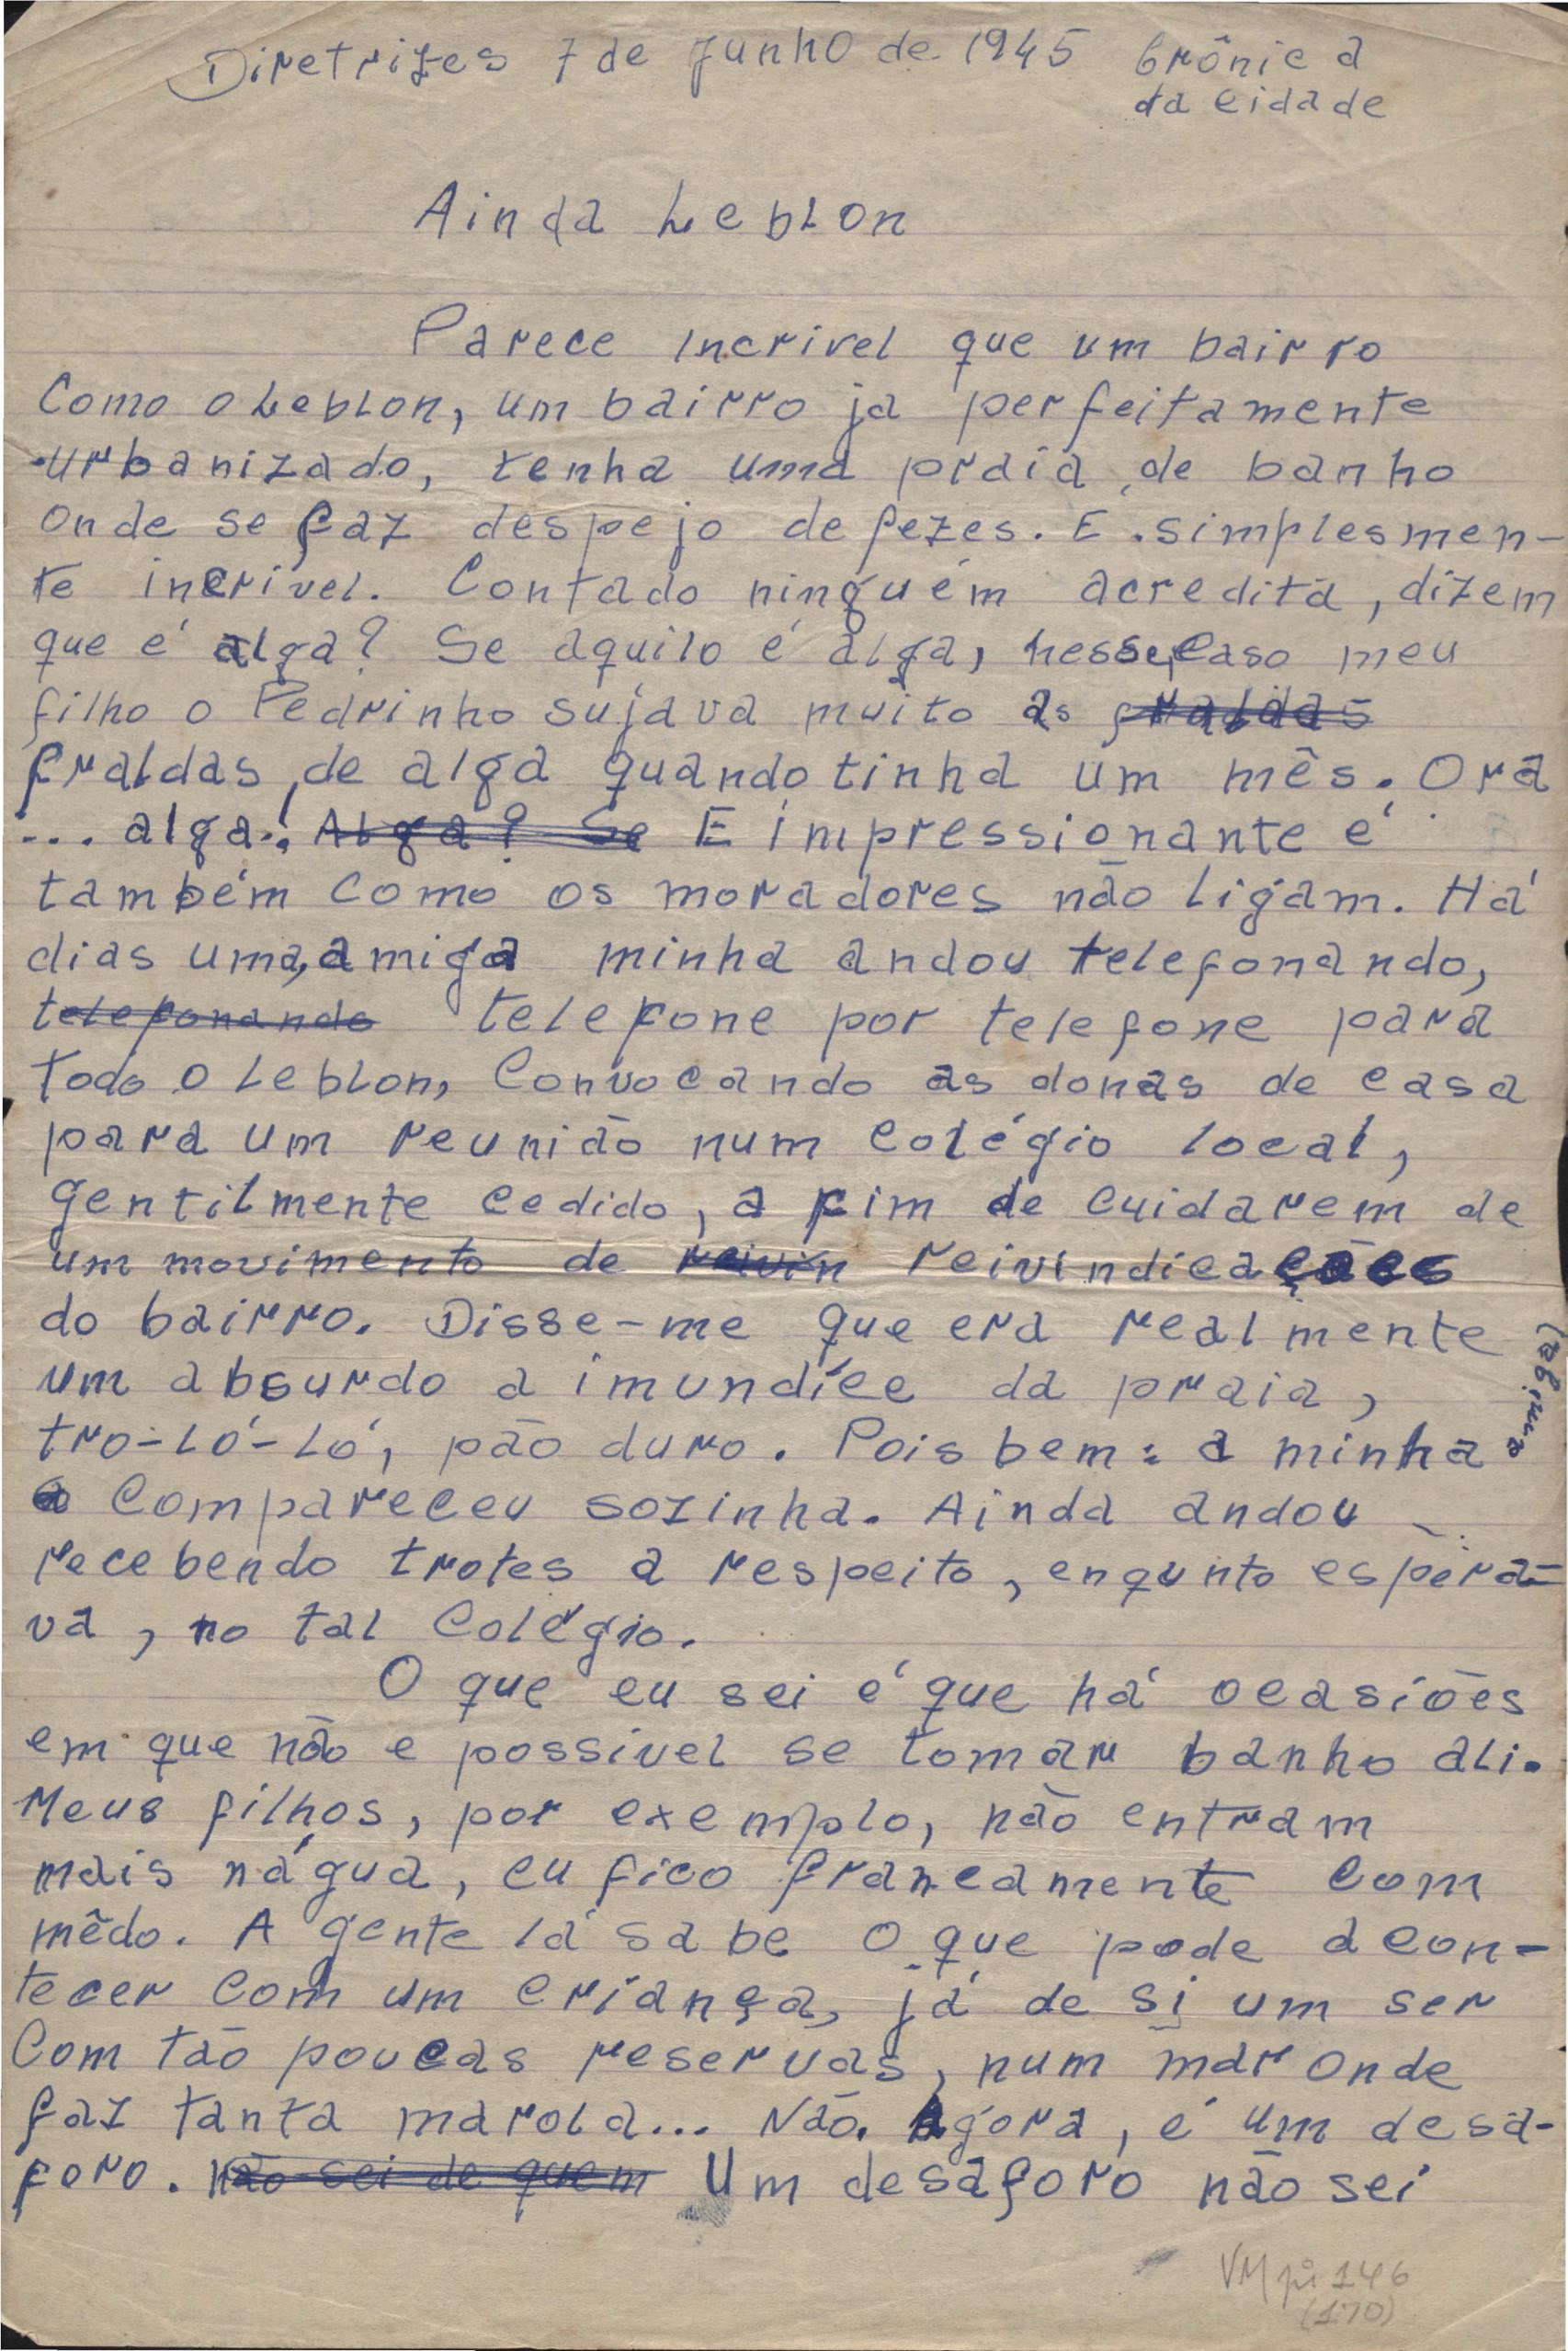 Diretrizes 7 de Junho de 1945 Crônica
da cidade
Ainda Leblon
Parece incrivel que um bairro
Como o Leblon, um bairro ja perfeitamente
urbanizado, tenha uma praia de banho
onde se faz despejo de fezes. E simplesmen-
te incrivel. Contado ninguém acredita, dizem
que é alga? Se aquilo é alga, nesse caso meu
filho o Pedrinho sujava muito as fraldas
fraldas de alga quando tinha um mês. Ora
... alga! Alga? Se E impressionante é
também como os moradores não ligam. Há
dias uma amiga minha andou telefonando,
telefonando telefone por telefone para
todo o Leblon, Convocando as donas de casa
para um reunião num colégio local,
gentilmente cedido, a fim de cuidarem de
um movimento de reivin reivindicações
do bairro. Disse-me que era realmente
um absurdo a imundíce da praia,
tro-ló-ló, pão duro. Pois bem: a minha amiga
a Compareceu sozinha. Ainda andou
recebendo trotes a respeito, enqunto espera-
va, no tal Colégio.
O que eu sei é que há ocasiões
em que não e possivel se tomar banho ali.
Meus filhos, por exemplo, não entram
mais nágua, eu fico francamente com
mêdo. A gente lá sabe o que pode acon-
tecer com um criança, já de si um ser
Com tão poucas reservas, num mar onde
faz tanta marola... Não. Agora, é um desa-
foro. não sei de quem Um desaforo não sei
VM pi 146
(170)